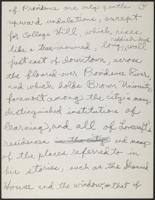 of Providence are only gentle
upward undulations, except
for College Hill, which rises,
like a true mound, long, small
just east of downtown, across
the floored-over Providence River,
and which holds Brown University,
foremost among the city's many
distinguished institutions of
learning, and all of Lovecraft's
residences in the city and many
of the places referred to in
his stories, such as the Shunned
House and the window that of